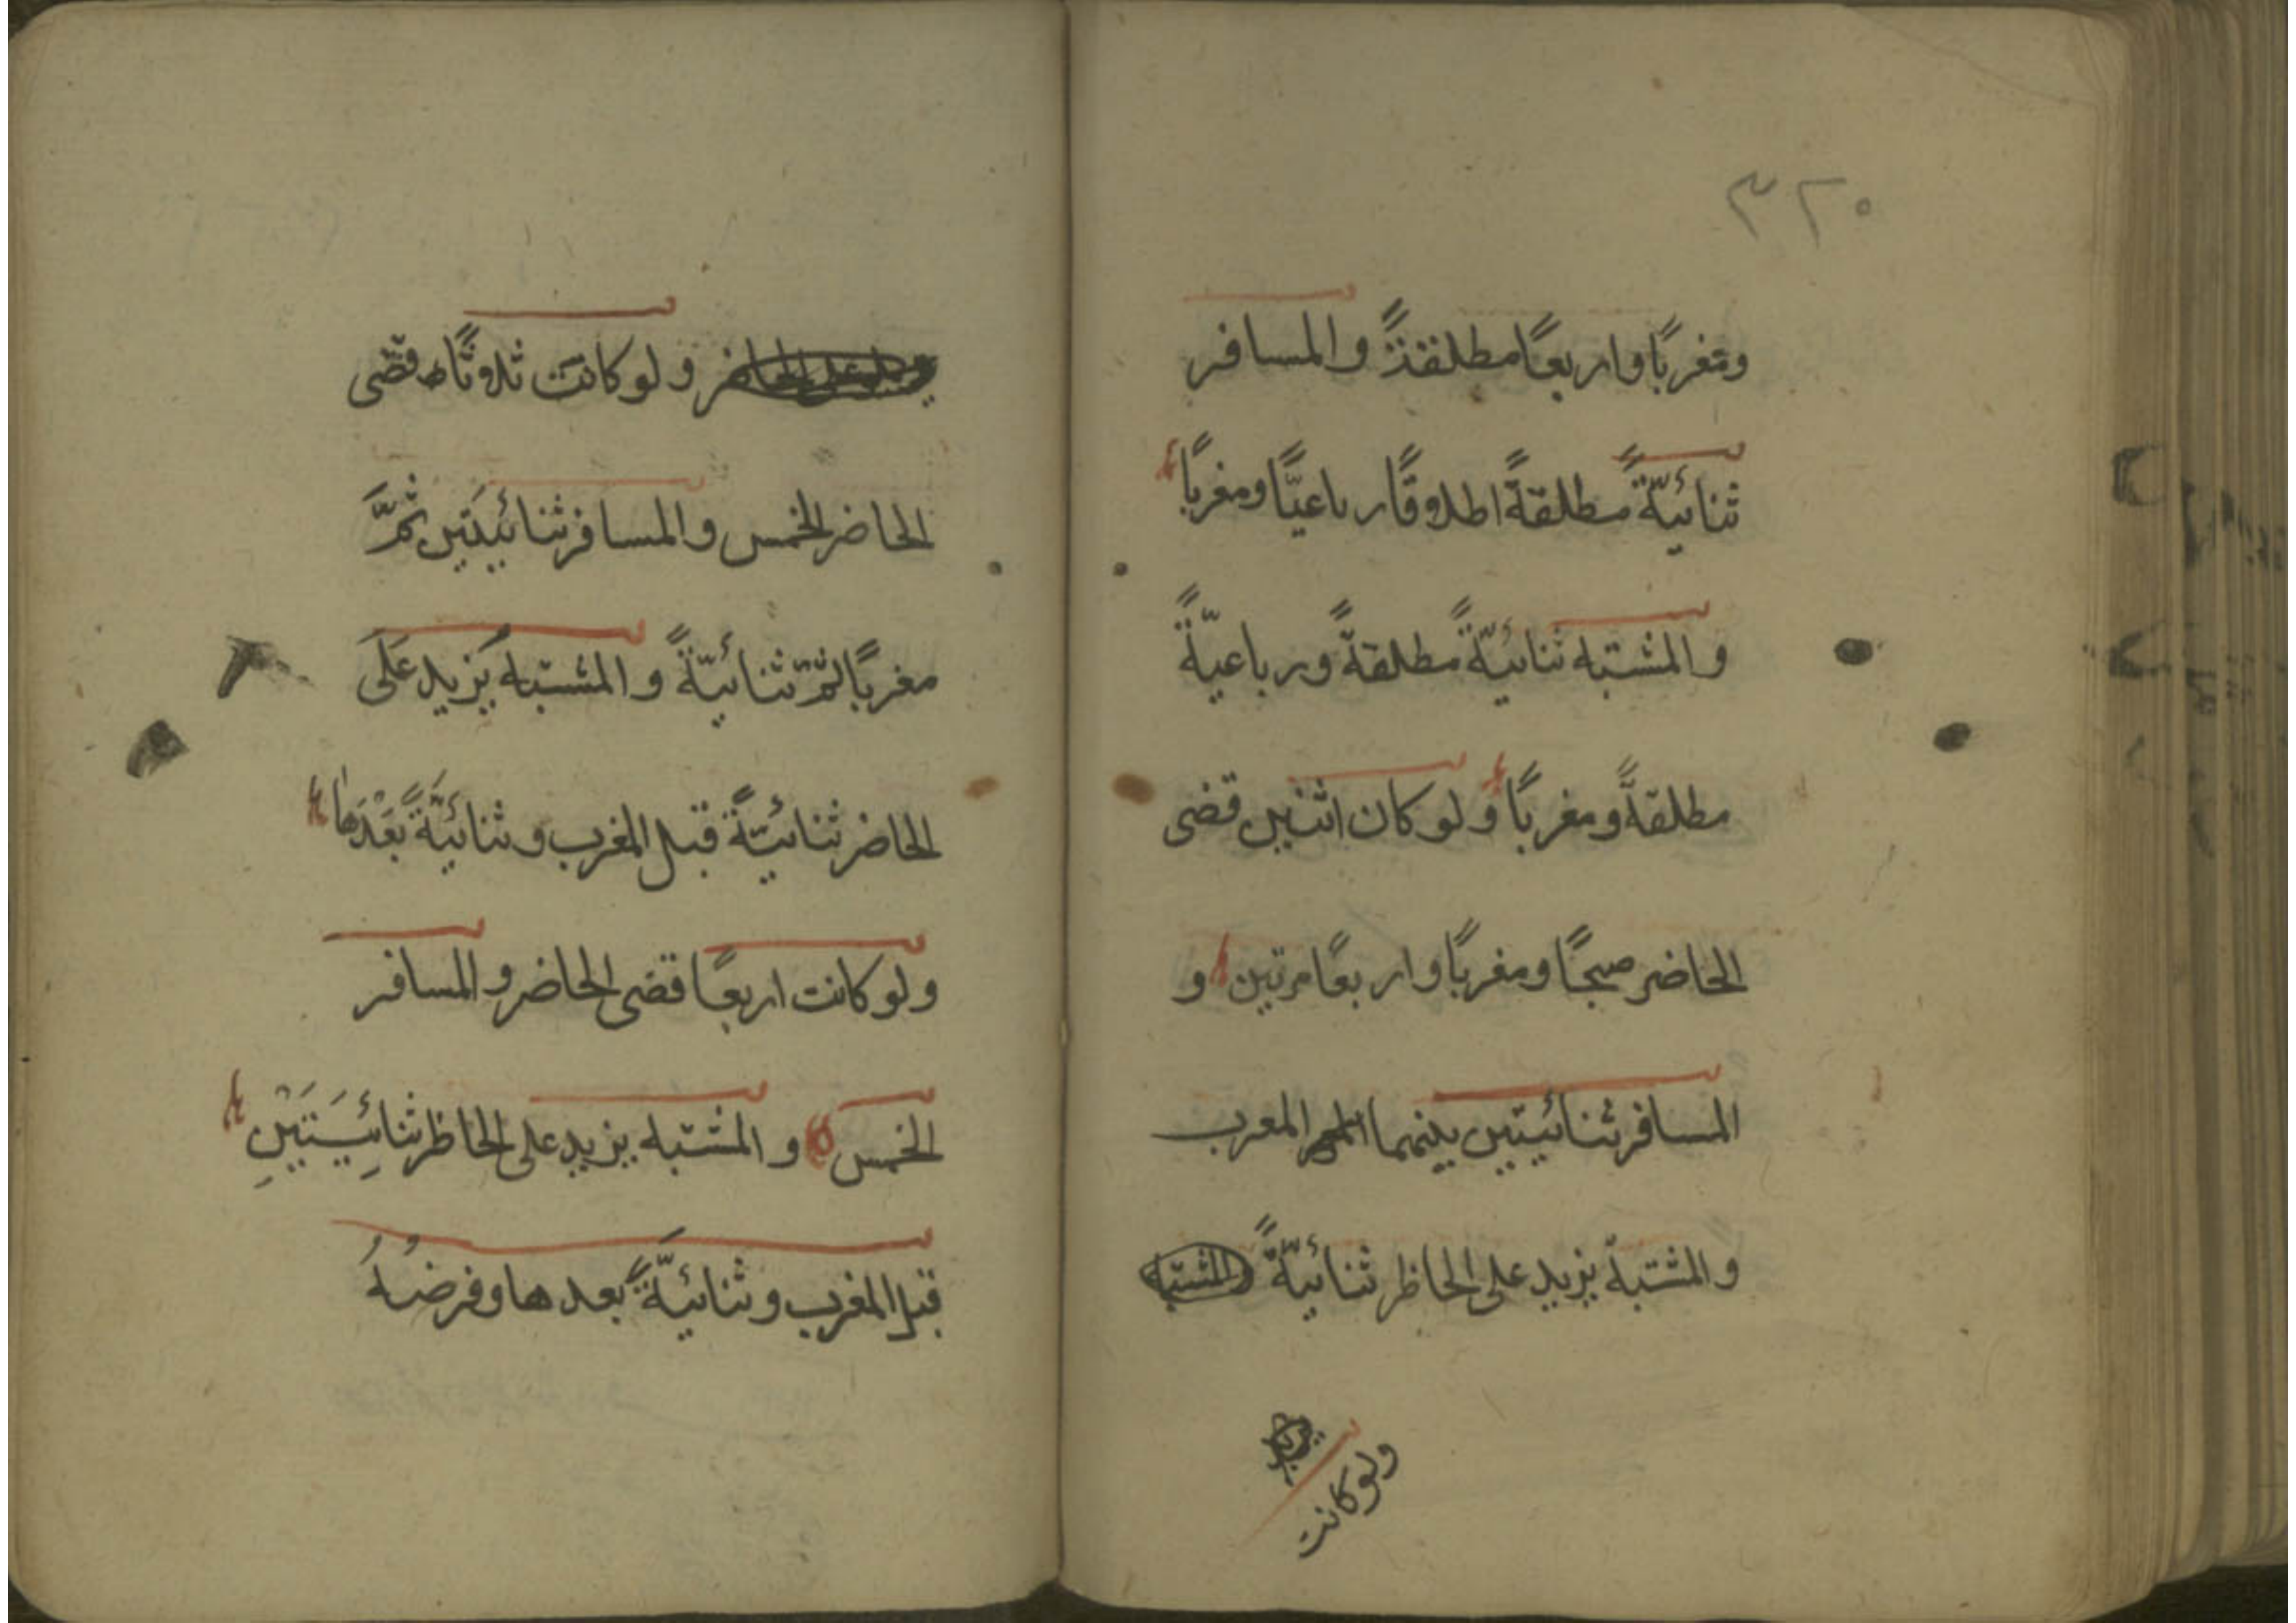 ٣٢٠
ومغربًا واربعًا مطلقةً والمسافر
ثنائيّةً مطلقةً اطلاوقًا رباعيًّا ومغربًا
والمشتبه ثنائيّةً مطلقةً ورباعيّةً
مطلقةً ومغربًا ولو كان اثنين قضى
الحاضر صبحًا ومغربًا واربعًا مرتين و
المسافر ثنائيتين بينهما المعرب
والمشتبه يزيد على الحاظر ثنائيّةً المشتبه
ولو كانت
ولو كانت ثلاوثًا قضى
الحاضر الخمس والمسافر ثنائيتين ثمَّ
مغربًا ثمّ ثنائيّةً والمشتبه يزيد عَلَى
الحاضر ثنائيّةً قبل المغرب وثنائيَّةً بَعْدَها
ولو كانت اربعًا قضى الحاضر والمسافر
الخمس والمشتبه يزيد على الحاظر ثنائِيَتَيْنِ
قبل المغرب وثنائيَّةً بعدها وفرضُهُ